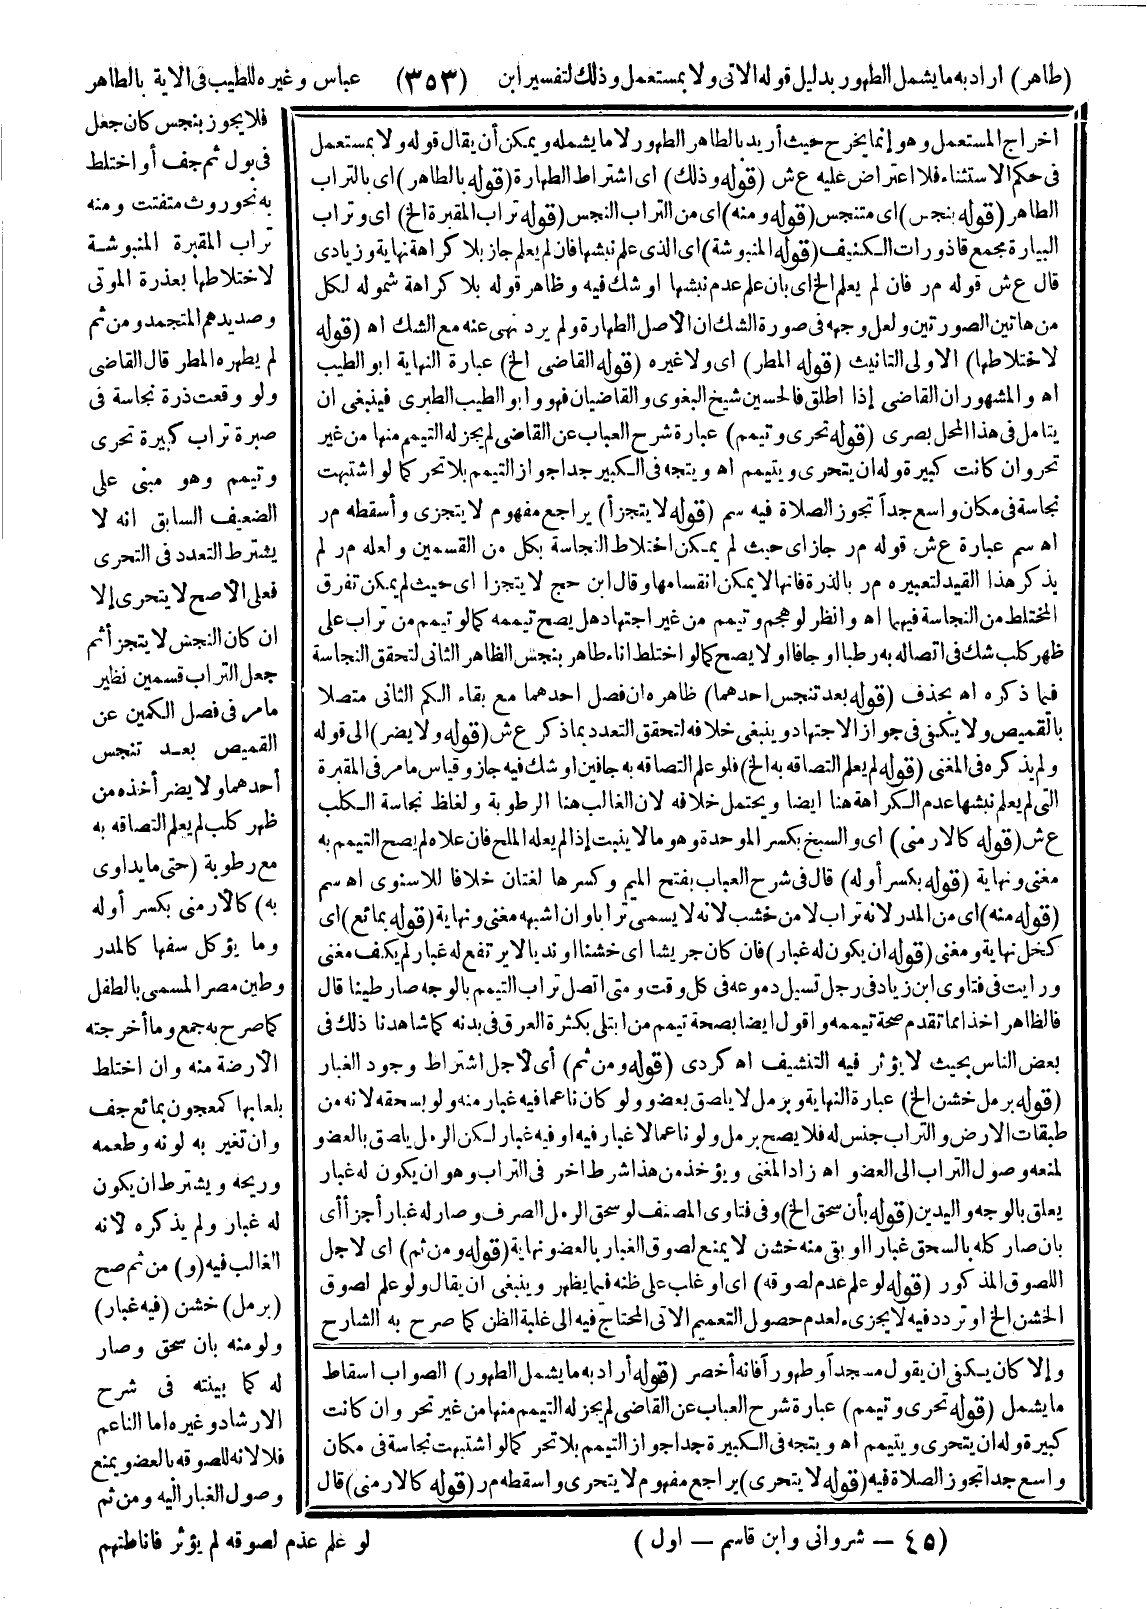 (طاهر) اراد به ما يشمل الطهور بدليل قوله الاتى ولا بمستعمل وذلك لتفسير ابن (٣٥٣) عباس وغيره للطيب فى الاية بالطاهر
فلا يجوز بنجس كان جعل
فى بول ثم جف أو اختلط
به نحو روث متفتت ومنه
تراب المقبرة المنبوشة
لاختلاطها بعذرة الموتى
وصديدهم المتجمد ومن ثم
لم يطهره المطر قال القاضى
ولو وقعت ذرة نجاسة فى
صبرة تراب كبيرة تحرى
وتيمم وهو مبنى على
الضعيف السابق انه لا
يشترط التعدد فى التحرى
فعلى الاصح لا يتحرى إلا
ان كان النجس لا يتجزأ ثم
جعل التراب قسمين نظير
مامر فى فصل الكمين عن
القميص بعد تنجس
أحدهما ولا يضر أخذه من
ظهر كلب لم يعلم التصاقه به
مع رطوبة (حتى ما يداوى
به) كالارمنى بكسر أوله
وما يؤكل سفها كالمدر
وطين مصر المسمى بالطفل
كما صرح به جمع وما أخرجته
الارضة منه وان اختلط
بلعابها كمعجون بمائع جف
وان تغير به لونه وطعمه
وريحه ويشترط ان يكون
له غبار ولم يذكره لانه
الغالب فيه (و) من ثم صح
(برمل) خشن (فيه غبار)
ولو منه بان سحق وصار
له كما بينته فى شرح
الارشاد وغيره اما الناعم
فلا لانه للصوقه بالعضو يمنع
وصول الغبار اليه ومن ثم
لو علم عدم لصوقه لم يؤثر فاناطتهم
اخراج المستعمل وهو إنما يخرج حيث أريد بالطاهر الطهور لا ما يشمله ويمكن أن يقال قوله ولا بمستعمل
فى حكم الاستثناء فلا اعتراض عليه ع ش (قوله وذلك) اى اشتراط الطهارة (قوله بالطاهر) اى بالتراب
الطاهر (قوله بنجس) اى متنجس (قوله ومنه) اى من التراب النجس (قوله تراب المقبرة الخ) اى وتراب
البيارة مجمع قاذورات الكنيف (قوله المنبوشة) اى الذى علم نبشها فان لم يعلم جاز بلا كراهة نهاية وزيادى
قال ع ش قوله مر فان لم يعلم الخ اى بان علم عدم نبشها او شك فيه وظاهر قوله بلا كراهة شموله لكل
من هاتين الصورتين ولعل وجهه فى صورة الشك ان الاصل الطهارة ولم يرد نهى عنه مع الشك اه (قوله
لاختلاطها) الاولى التانيث (قوله المطر) اى ولا غيره (قوله القاضى الخ) عبارة النهاية ابو الطيب
اه والمشهور ان القاضى إذا اطلق فالحسين شيخ البغوى والقاضيان فهو وابو الطيب الطبرى فينبغى ان
يتامل فى هذا المحل بصرى (قوله تحرى وتيمم) عبارة شرح العباب عن القاضى لم يجز له التيمم منها من غير
تحر وان كانت كبيرة وله ان يتحرى ويتيمم اه ويتجه فى الكبير جدا جواز التيمم بلا تحر كما لو اشتبهت
نجاسة فى مكان واسع جدا تجوز الصلاة فيه سم (قوله لا يتجزأ) يراجع مفهوم لا يتجزى وأسقطه مر
اه سم عبارة ع ش قوله مر جاز اى حيث لم يمكن اختلاط النجاسة بكل من القسمين ولعله مر لم
يذكر هذا القيد لتعبيره مر بالذرة فانها لا يمكن انقسامها وقال ابن حج لا يتجزا اى حيث لم يمكن تفرق
المختلط من النجاسة فيهما اه وانظر لو هجم وتيمم من غير اجتهاد هل يصح تيممه كما لو تيمم من تراب على
ظهر كلب شك فى اتصاله به رطبا او جافا او لا يصح كما لو اختلط اناء طاهر بنجس الظاهر الثانى لتحقق النجاسة
فيما ذكره اه بحذف (قوله بعد تنجس احدهما) ظاهره ان فصل احدهما مع بقاء الكم الثانى متصلا
بالقميص ولا يكفى فى جواز الاجتهاد وينبغى خلافه لتحقق التعدد بما ذكر ع ش (قوله ولا يضر) الى قوله
ولم يذكره فى المغنى (قوله لم يعلم التصاقه به الخ) فلو علم التصاقه به جافين او شك فيه جاز وقياس مامر فى المقبرة
التى لم يعلم نبشها عدم الكراهة هنا ايضا ويحتمل خلافه لان الغالب هنا الرطوبة ولغلظ نجاسة الكلب
ع ش (قوله كالارمنى) اى والسبخ بكسر الموحدة وهو مالا ينبت إذا لم يعله الملح فان علاه لم يصح التيمم به
مغنى ونهاية (قوله بكسر أوله) قال فى شرح العباب بفتح الميم وكسرها لغتان خلافا للاسنوى اه سم
(قوله منه) اى من المدر لانه تراب لا من خشب لانه لا يسمى ترابا وان اشبهه مغنى ونهاية (قوله بمائع) اى
كخل نهاية ومغنى (قوله ان يكون له غبار) فان كان جريشا اى خشنا او نديا لا يرتفع له غبار لم يكف مغنى
ورايت فى فتاوى ابن زياد فى رجل تسيل دموعه فى كل وقت ومتى اتصل تراب التيمم بالوجه صار طينا قال
فالظاهر اخذا مما تقدم صحة تيممه واقول ايضا بصحة تيمم من ابتلى بكثرة العرق فى بدنه كما شاهدنا ذلك فى
بعض الناس بحيث لا يؤثر فيه التنشيف اه كردى (قوله ومن ثم) أى لاجل اشتراط وجود الغبار
(قوله برمل خشن الخ) عبارة النهاية وبرمل لا يلصق بعضو ولو كان ناعما فيه غبار منه ولو بسحقه لانه من
طبقات الارض والتراب جنس له فلا يصح برمل ولو ناعما لا غبار فيه او فيه غبار لكن الرمل يلصق بالعضو
لمنعه وصول التراب الى العضو اه زاد المغنى ويؤخذ من هذا شرط اخر فى التراب وهو ان يكون له غبار
يعلق بالوجه واليدين (قوله بأن سحق الخ) وفى فتاوى المصنف لو سحق الرمل الصرف وصار له غبار أجزأ أى
بان صار كله بالسحق غبارا او بقى منه خشن لا يمنع لصوق الغبار بالعضو نهاية (قوله ومن ثم) اى لاجل
اللصوق المذكور (قوله لو علم عدم لصوقه) اى او غلب على ظنه فيما يظهر وينبغى ان يقال ولو علم لصوق
الخشن الخ او تردد فيه لا يجزىء لعدم حصول التعميم الاتى المحتاج فيه الى غلبة الظن كما صرح به الشارح
وإلا كان يكفى ان يقول مسجدا وطهورا فانه أخصر (قوله أراد به ما يشمل الطهور) الصواب اسقاط
ما يشمل (قوله تحرى وتيمم) عبارة شرح العباب عن القاضى لم يجز له التيمم منها من غير تحر وان كانت
كبيرة وله ان يتحرى ويتيمم اه ويتجه فى الكبيرة جدا جواز التيمم بلا تحر كما لو اشتبهت نجاسة فى مكان
واسع جدا تجوز الصلاة فيه (قوله لا يتحرى) يراجع مفهوم لا يتحرى واسقطه مر (قوله كالارمنى) قال
(٤٥ – شروانى وابن قاسم – اول)